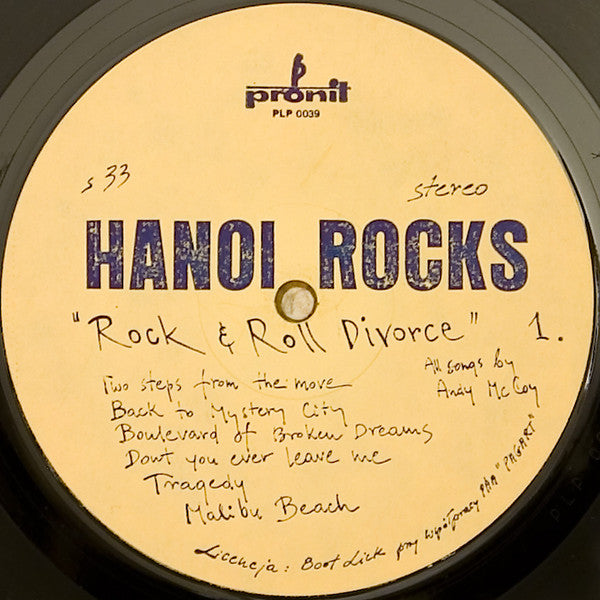 pronit
PLP 0039
s 33
stereo
HANOI ROCKS
"Rock & Roll Divorce" 1.
All songs by
Andy McCoy
Two steps from the move
Back to Mystery City
Boulevard of Broken Dreams
Dont you ever leave me
Tragedy
Malibu Beach
Licencja: Boot Lick przy współpracy PAA "PAGART"